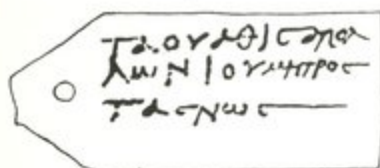 Ταουαθις Απολ
λωνιου μητρος
Τασνως